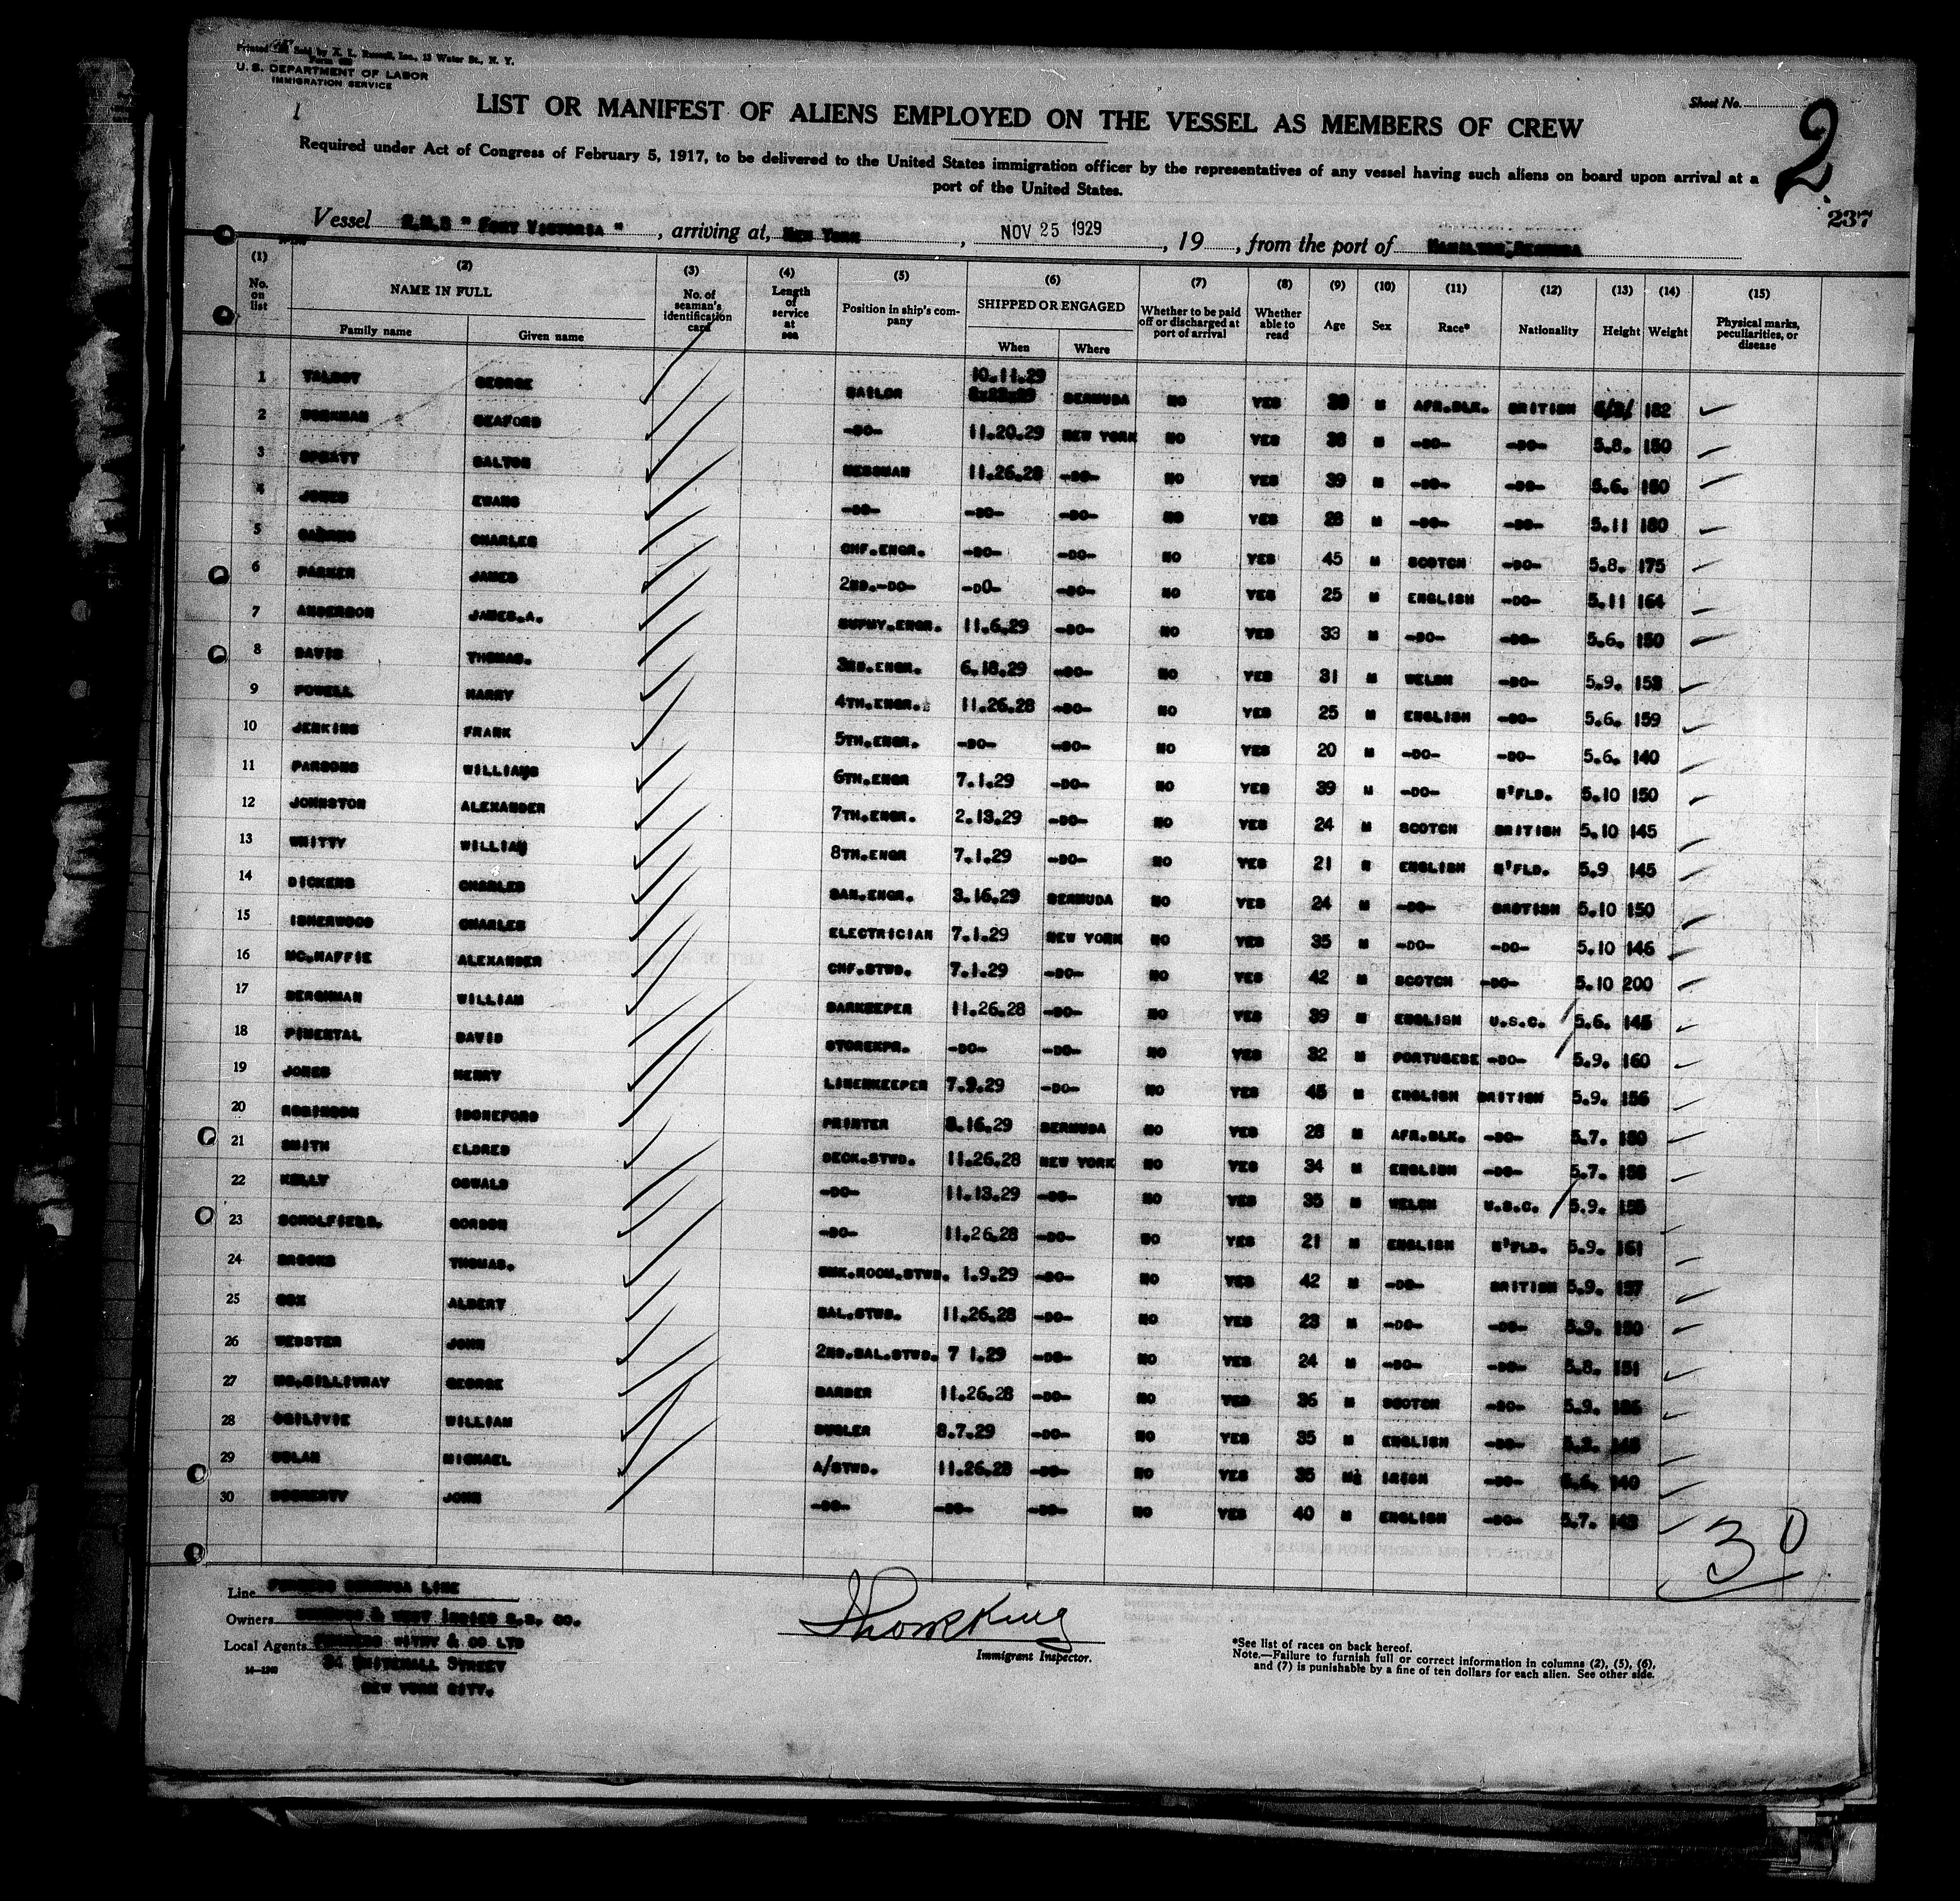 Printed and Sold by X. L. Russell, Inc., 13 Water St., N. Y.
U. S. DEPARTMENT OF LABOR
IMMIGRATION SERVICE
1
Sheet No. 2
LIST OR MANIFEST OF ALIENS EMPLOYED ON THE VESSEL AS MEMBERS OF CREW
Required under Act of Congress of February 5, 1917, to be delivered to the United States immigration officer by the representatives of any vessel having such aliens on board upon arrival at a
port of the United States.
237
Vessel "FORT VICTORIA", arriving at, NEW YORK, NOV 25 1929, 19, from the port of HAMILTON, BERMUDA
(1) (2) (3) (4) (5) (6) (7) (8) (9) (10) (11) (12) (13) (14) (15)
No. on list NAME IN FULL No. of seaman's identification card Length of service at sea Position in ship's company SHIPPED OR ENGAGED Whether to be paid off or discharged at port of arrival Whether able to read Age Sex Race* Nationality Height Weight Physical marks, peculiarities, or disease
Family name Given name When Where
10.11.29
1 TALBOT GEORGE SAILOR BERMUDA NO YES M AFR.BLK. BRITISH 182
2 SEAFORD -DO- 11.20.29 NEW YORK NO YES 38 M -DO- -DO- 5.8. 150
3 SPRATT DALTON MESSMAN 11.26.28 -DO- NO YES 39 M -DO- -DO- 5.6. 150
4 JONES EVANS -DO- -DO- -DO- NO YES 28 M -DO- -DO- 5.11 180
5 CHARLES CHF.ENGR. -DO- -DO- NO YES 45 M SCOTCH -DO- 5.8. 175
6 PARKER JAMES 2ND.-DO- -DO- -DO- NO YES 25 M ENGLISH -DO- 5.11 164
7 ANDERSON JAMES.A. 11.6.29 -DO- NO YES 33 M -DO- -DO- 5.6. 150
8 DAVIS THOMAS. 3RD.ENGR. 6.18.29 -DO- NO YES 31 M WELSH -DO- 5.9. 153
9 POWELL HARRY 4TH.ENGR. 11.26.28 -DO- NO YES 25 M ENGLISH -DO- 5.6. 159
10 JENKINS FRANK 5TH.ENGR. -DO- -DO- NO YES 20 M -DO- -DO- 5.6. 140
11 PARSONS WILLIAMS 6TH.ENGR 7.1.29 -DO- NO YES 39 M -DO- N'FLD. 5.10 150
12 JOHNSTON ALEXANDER 7TH.ENGR. 2.13.29 -DO- NO YES 24 M SCOTCH BRITISH 5.10 145
13 WHITTY WILLIAM 8TH.ENGR 7.1.29 -DO- NO YES 21 M ENGLISH N'FLD. 5.9 145
14 DICKENS CHARLES SAN.ENGR. 3.16.29 BERMUDA NO YES 24 M -DO- BRITISH 5.10 150
15 ISHERWOOD CHARLES ELECTRICIAN 7.1.29 NEW YORK NO YES 35 M -DO- -DO- 5.10 146
16 MC.HAFFIE ALEXANDER CHF.STWD. 7.1.29 -DO- NO YES 42 M SCOTCH -DO- 5.10 200
17 BERGHMAN WILLIAM BARKEEPER 11.26.28 -DO- NO YES 39 M ENGLISH U.S.C. 5.6. 145
18 PIMENTAL DAVID STOREKPR. -DO- -DO- NO YES 32 M PORTUGESE -DO- 5.9. 160
19 JONES HENRY LINENKEEPER 7.9.29 -DO- NO YES 45 M ENGLISH BRITISH 5.9. 156
20 ROBINSON PRINTER 8.16.29 BERMUDA NO YES 28 M AFR.BLK. -DO- 5.7.
21 SMITH ELDRED DECK.STWD. 11.26.28 NEW YORK NO YES 34 M ENGLISH -DO- 5.7.
22 KELLY OSWALD -DO- 11.13.29 -DO- NO YES 35 M WELSH U.S.C. 5.9.
23 SCHOLFIELD. GORDON -DO- 11.26.28 -DO- NO YES 21 M ENGLISH N'FLD. 5.9. 161
24 BROOKS THOMAS. SMK.ROOM.STWD. 1.9.29 -DO- NO YES 42 M -DO- BRITISH 5.9. 157
25 COX ALBERT SAL.STWD. 11.26.28 -DO- NO YES 23 M -DO- -DO- 5.9.
26 WEBSTER JOHN 2ND.SAL.STWD. 7 1.29 -DO- NO YES 24 M -DO- -DO- 5.8. 151
27 MC.GILLIVRAY GEORGE BARBER 11.26.28 -DO- NO YES 36 M SCOTCH -DO- 5.9.
28 OGILIVIE WILLIAM BUGLER 8.7.29 -DO- NO YES 35 M ENGLISH -DO-
29 DOLAN MICHAEL A/STWD. 11.26.28 -DO- NO YES 35 M IRISH -DO- 5.6. 140
30 DOGHERTY JOHN -DO- -DO- -DO- NO YES 40 M ENGLISH -DO- 5.7. 143
30
Line FURNESS BERMUDA LINE
Owners BERMUDA & WEST INDIES S.S. CO.
Local Agents FURNESS WITHY & CO LTD
34 WHITEHALL STREET
NEW YORK CITY.
14—1240
Immigrant Inspector.
*See list of races on back hereof.
Note.—Failure to furnish full or correct information in columns (2), (5), (6),
and (7) is punishable by a fine of ten dollars for each alien. See other side.